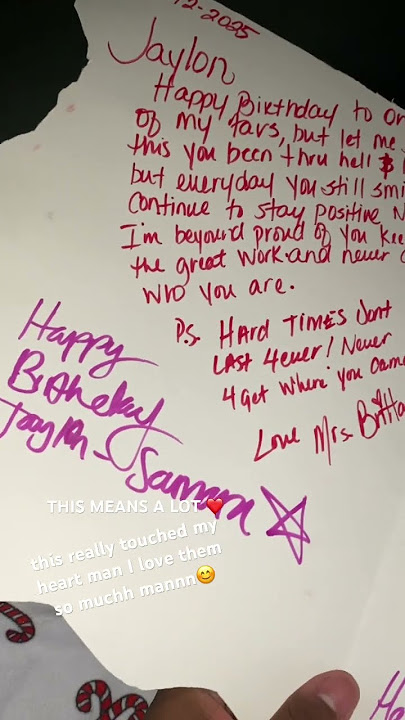 12-2025
Jaylon
Happy Birthday to
of my favs, but let me
this you been thru hell $
but everyday you still
Continue to stay positive
I'm beyound proud of you
the great work and never
WHO you are.
P.S. HARD TIMES Dont
LAST 4ever! Never
4get Where you
Love Mrs.
Happy
Birtheday
Jaylon - Samara
THIS MEANS A LOT ❤️
this really touched my
heart man I love them
so muchh mannn😊